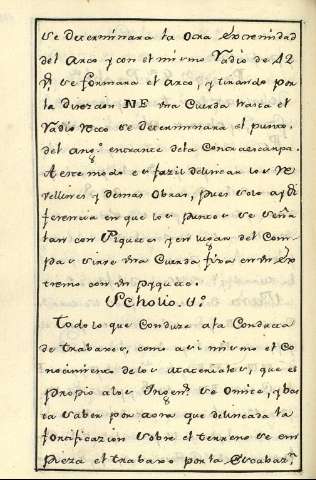 se determinara la otra extremidad
del Arco y con el mismo Radio de 42
se formara el arco, y tirando por
la direccion NE una Cuerda hasta el
Radio Recto se determinara el punto.
del ang.º entrante dela Contraescarpa.
A este modo es fazil delinear los Re
vellines y demas Obras, pues solo ay di
ferencia en que los puntos se seña
lan con Piquetes y en lugar del Com
pas sirve una Cuerda fixa en un ex
tremo con un pyquete.
Scholio. 6º
Todo lo que conduze ala Conducta
de trabaxos, como assi mismo el Co
nocimiento delos Materiales, que es
propio alos Ingen.s se omite, y bas
ta saber por aora que delineada la
fortificazion sobre el terreno se em
pieza el trabaxo por la Excabaz.n